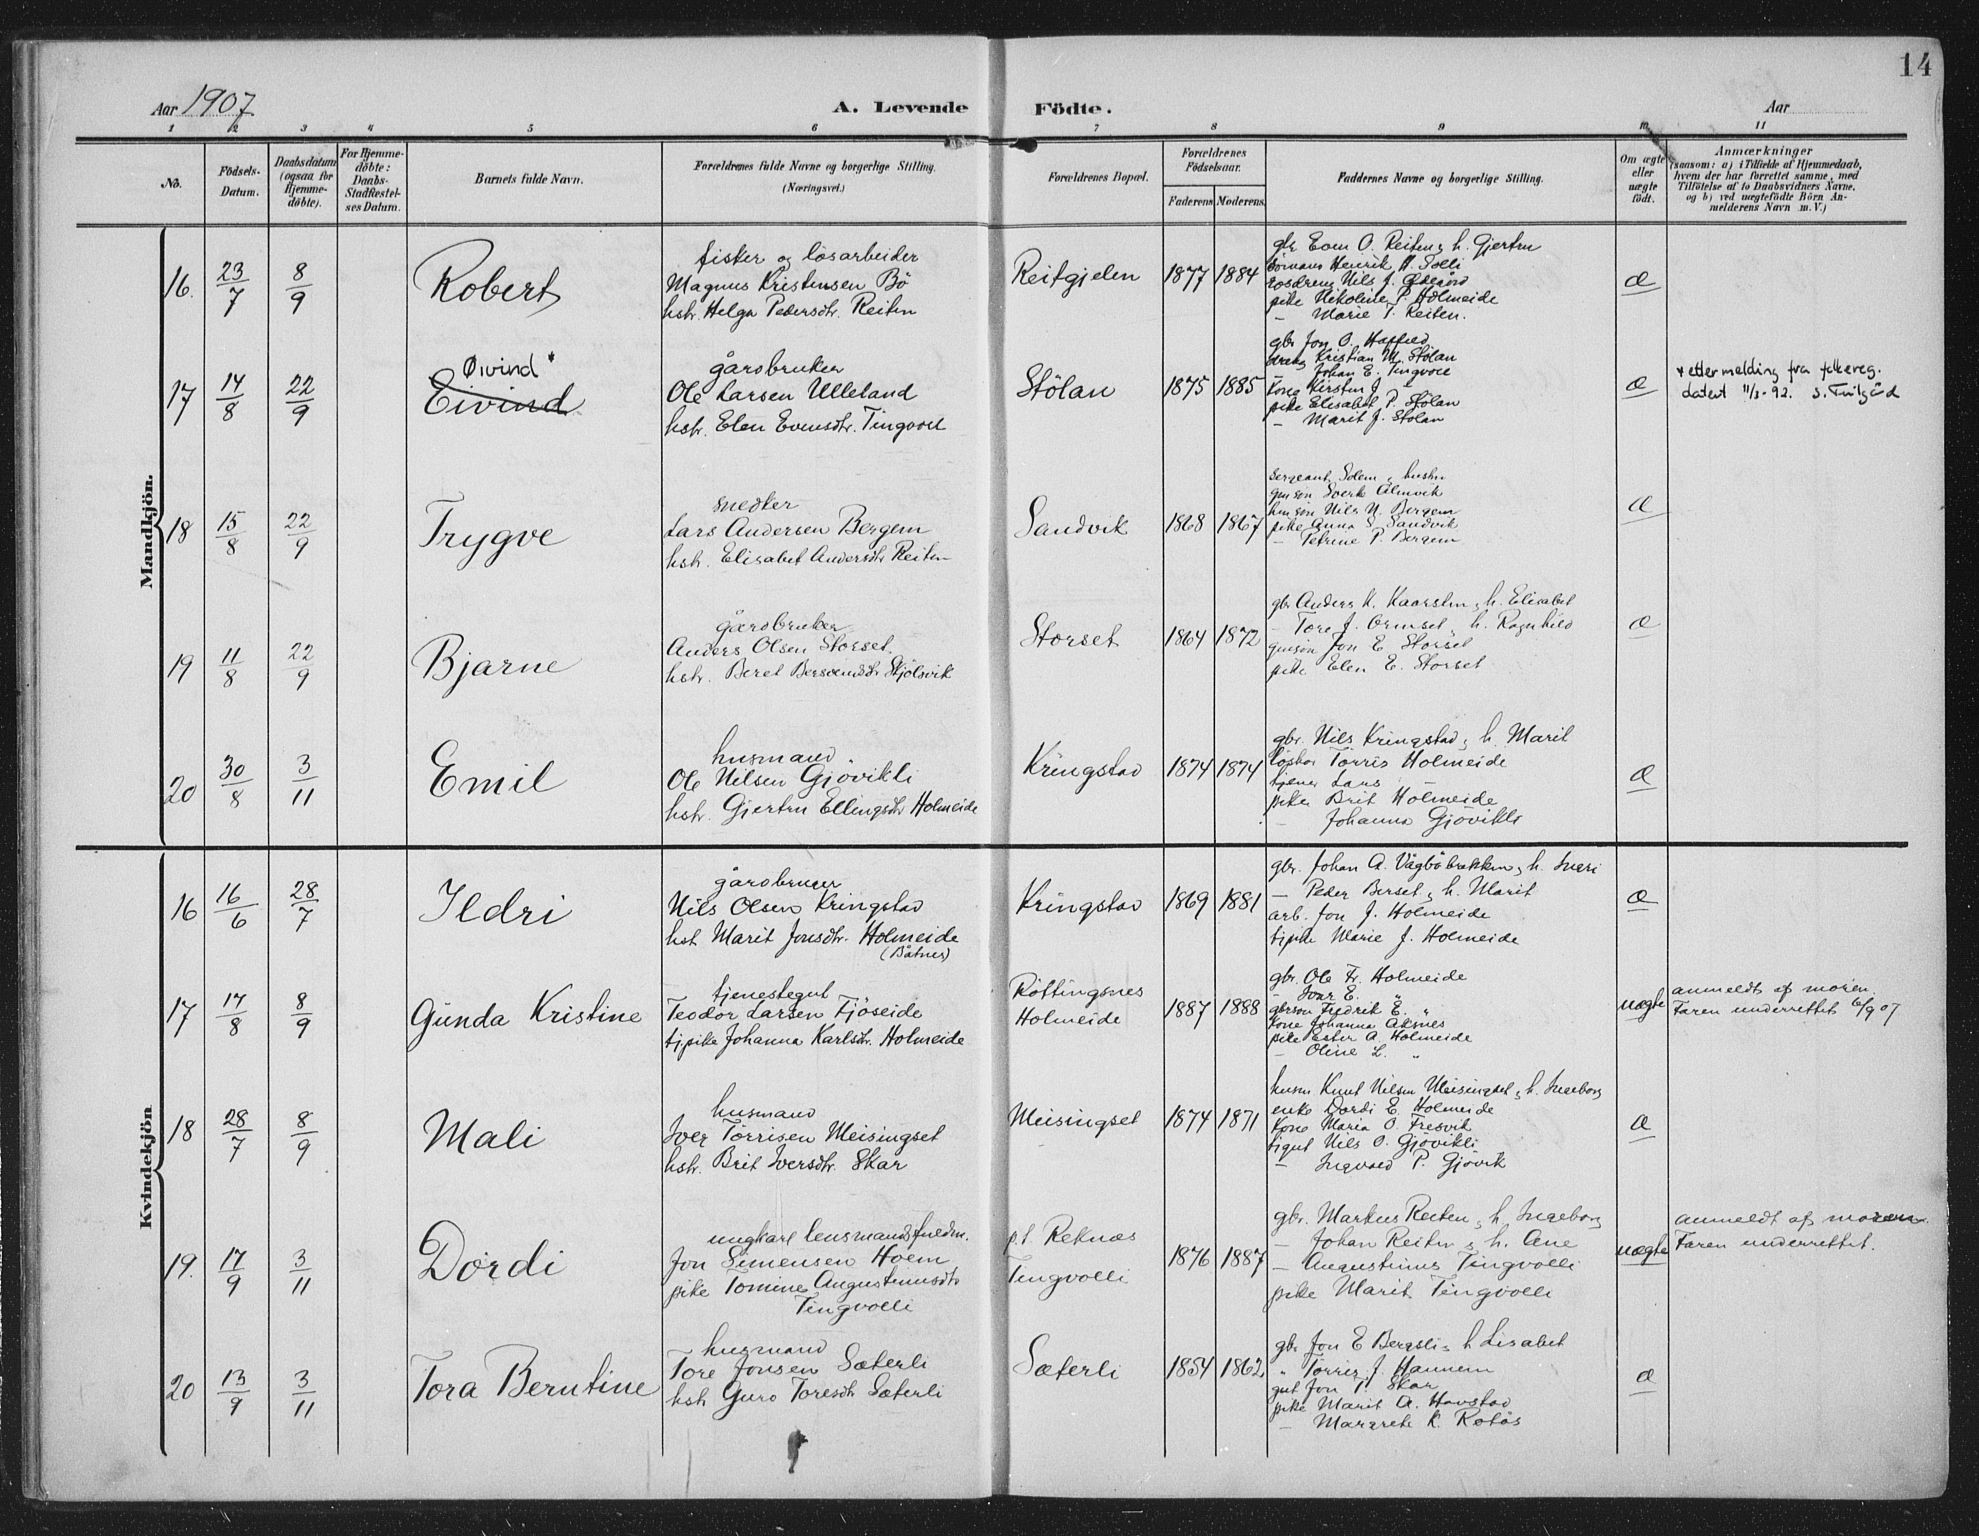 14
Aar 1907
A. Levende Födte.
Aar
1 2 3 4 5 6 7 8 9 10 11
No.
Födsels-Datum.
Daabsdatum (ogsaa for Hjemme-döbte).
For Hjemme-döbte: Daabs-Stadfestel-ses Datum.
Barnets fulde Navn.
Forældrenes fulde Navne og borgerlige Stilling. (Næringsvei.)
Forældrenes Bopæl.
Forældrenes Födselsaar.
Faderens Moderens
Faddernes Navne og borgerlige Stilling.
Om ægte eller uægte födt.
Anmærkninger
(saasom: a) i Tilfælde af Hjemmedaab, hvem der har forrettet samme, med Tilföielse af to Daabsvidners Navne. og b) ved uægtefödte Börn An-melderens Navn m. V.)
Mandkjön.
16. 23/7 8/9 Robert
fisker og løsarbeider
Magnus Kristensen Bö
hstr. Helga Pedersdtr. Reiten
Reitgjelen 1877 1884
O. Reiten, h. Gjertru
Henrik H. Solli
Nils J.
pike Nikoline P. Holmeide
— Marie T. Reiten.
æ
17 14/8 22/9 Øivind *
Eivind
gårdbruker
Ole Larsen Ulleland
hstr. Elen Evensdtr. Tingvoll
Stölan 1875 1885
gbr Jon O.
Kristian M. Stölan
Johan E. Tingvoll
kone Kirsten J. —
pike Elisabet P. Stölan
— Marit J. Stölan
æ
* etter melding fra folkereg.
datert 11/3-92.
18 15/8 22/9 Trygve
snedker
Lars Andersen Bergem
hstr. Elisabet Andersdtr Reiten
Sandvik 1868 1867
sergeant Solem, hustru
Sverk Almvik
Nils N. Bergem
pike Anna S. Sandvik
— Petrine P. Bergem
æ
19 11/8 22/9 Bjarne
gårdbruker
Anders Olsen Storset.
hstr. Beret Bersvendsdtr Skjölsvik
Storset 1864 1872
gbr Anders K. Kaarsten, h. Elisabet
— Tore J. Ormset, h. Ragnhild
Jon E. Storset
pike Elen E. Storset
æ
20 30/8 3/11 Emil
husmand
Ole Nilsen Gjövikli
hstr. Gjertru Ellingsdtr Holmeide
Kringstad 1874 1874
gbr. Nils Kringstad, h. Marit
Torris Holmeide
tjener Lars —
pike Brit Holmeide
— Johanna Gjövikli
æ
Kvindekjön
16 16/6 28/7 Ildri
gårdbruger
Nils Olsen Kringstad
hst Marit Jonsdtr. Holmeide
(Båtnes)
Kringstad 1869 1881
gbr. Johan A. Vågböbrekken, h. Ingri
— Peder Berset, h. Marit
arb. Jon J. Holmeide
tjpike Marie J. Holmeide
æ
17 17/8 8/9 Gunda Kristine
tjenestegut
Teodor Larsen Fjöseide
tjpike Johanna Karlsdtr. Holmeide
Röttingsnes
Holmeide 1887 1888
gbr. Ole Fr. Holmeide
— Ivar E. "
gbrsön Fredrik E. "
kone Johanna Aksnes
pike Ester A. Holmeide
— Oline L. "
uægte
anmeldt af moren.
Faren underrettet 6/9 07
18 28/7 8/9 Mali
husmand
Iver Torrisen Meisingset
hstr. Brit Iversdtr. Skar
Meisingset 1874 1871
husm Knut Nilsen Meisingset, h. Ingeborg
enke Dordi E. Holmeide
kone Maria O. Fresvik
tjgut Nils O. Gjövikli
— Ingvald P. Gjövik
æ
19. 17/9 3/11 Dordi
ungkarl lensmandsfuldm.
Jon Simensen Hoem
pike Tomine Augustinusdtr
Tingvolli
p.t. Reknæs
Tingvolli 1876 1887
gbr. Markus Reiten, h. Ingeborg
— Johan Reiten, h. Ane
— Augustinus Tingvolli
pike Marit Tingvolli
uægte
anmeldt af moren.
Faren underrettet.
20 13/9 3/11 Tora Berntine
husmand
Tore Jonsen Sæterli
hst Guro Toresdtr Sæterli
Sæterli 1854 1862
gbr Jon E Bergsli, h Lisabet
" Torris J. Hannem
gut Jon T. Skar
pike Marit A. Havstad
— Margrete K. Rotås
æ